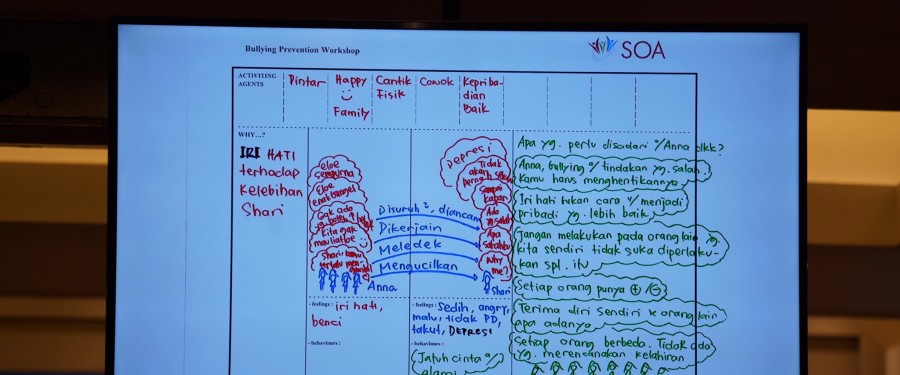 Bullying Prevention Workshop
SOA
ACTIVITING
AGENTS
Pintar
Happy
Family
Cantik
Fisik
Cowok
Kepriba-
dian
Baik
WHY...?
IRI HATI
terhadap
Kelebihan
Shari
Eloe
sempurna
Eloe
Gak ada
Kita gak
Shari kamu
terlalu
Disuruh², diancam
Dikerjain
Meledek
Mengucilkan
Anna
Depresi
Tidak
akan
Sampai
kapan
Ada
Apa
salahku
Why
me?
Shari
- feelings :
iri hati,
benci
- behaviours :
- feelings :
Sedih, angry,
malu, tidak PD,
takut, DEPRESI
- behaviours :
Jatuh cinta
Apa yg. perlu disadari o/Anna dkk?
Anna, Bullying tindakan yg. salah.
Kamu harus menghentikannya
Iri hati bukan cara u/menjadi
pribadi yg. lebih baik.
Jangan melakukan pada orang lain yg.
kita sendiri tidak suka diperlaku-
kan spt. itu
Setiap orang punya ⊕/⊖
Terima diri sendiri & orang lain
apa adanya
Setiap orang berbeda. Tidak ada
yg. merencanakan kelahiran